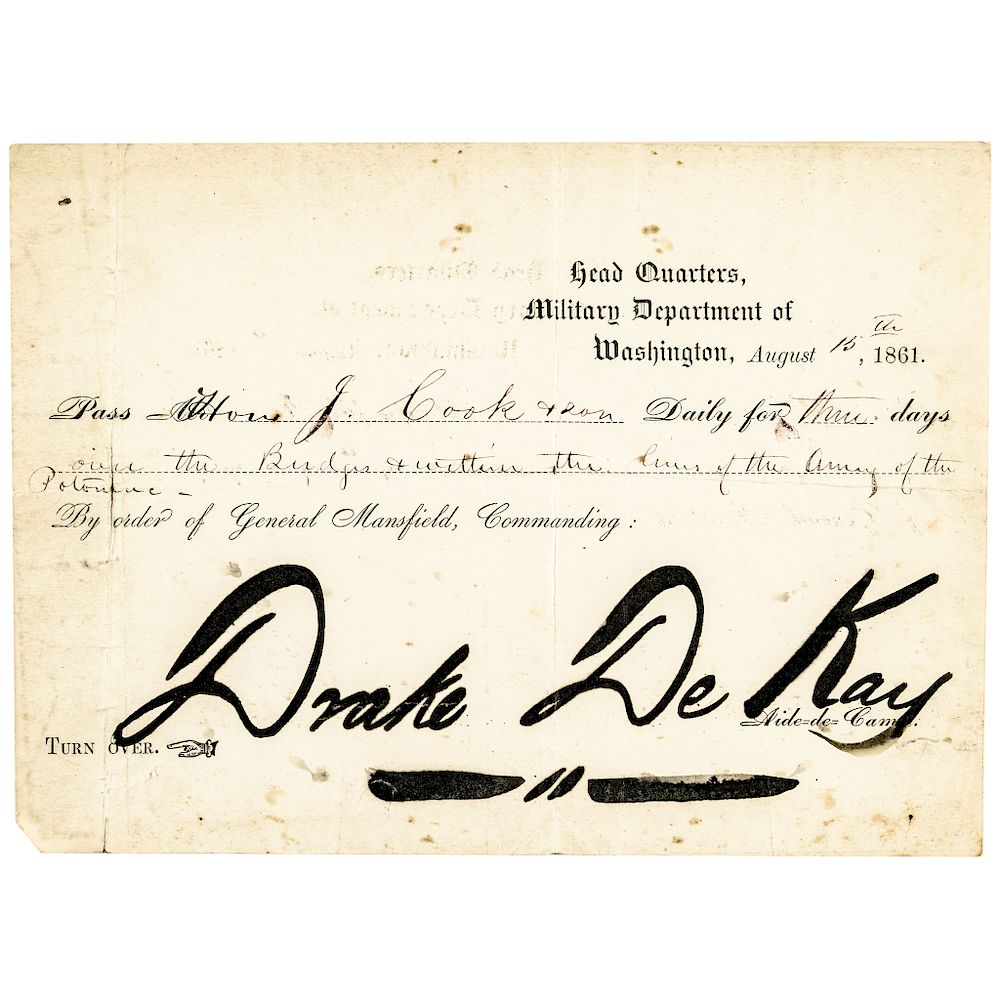 Head Quarters,
Military Department of
Washington, August 15th, 1861.
Pass J. Cook & son Daily for three days
over the Bridges & within the lines of the Army of the
Potomac –
By order of General Mansfield, Commanding :
Drake De Kay
Aide-de-Camp.
TURN OVER.